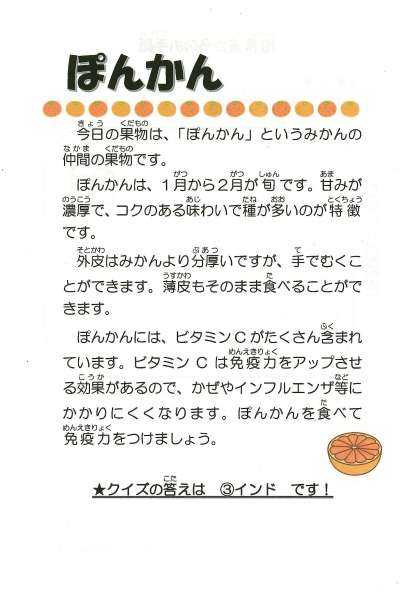 ぽんかん
今日の果物は、「ぽんかん」というみかんの
仲間の果物です。
ぽんかんは、1月から2月が旬です。甘みが
濃厚で、コクのある味わいで種が多いのが特徴
です。
外皮はみかんより分厚いですが、手でむくこ
とができます。薄皮もそのまま食べることがで
きます。
ぽんかんには、ビタミンCがたくさん含まれ
ています。ビタミンCは免疫力をアップさせ
る効果があるので、かぜやインフルエンザ等に
かかりにくくなります。ぽんかんを食べて
免疫力をつけましょう。
★クイズの答えは ③インド です！